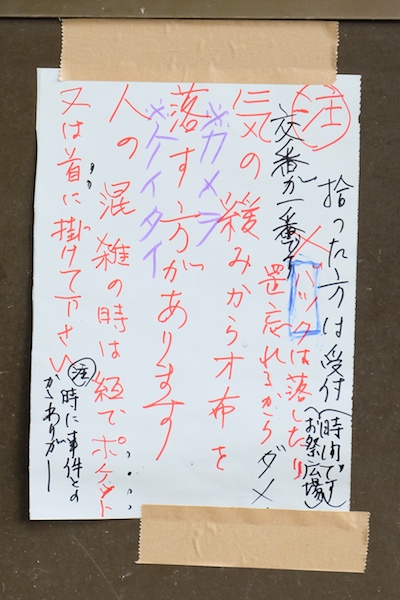 注
拾った方は受付(時間です お祭広場)
交番が一番です
×バックは落したり
置忘れるからダメ
気の緩みからオ布を
※カメラ
落す方があります
※ケイタイ
人の混雑の時は紐でポケット
又は首に掛けて下さい
注 時に事件との
かゝわりがー